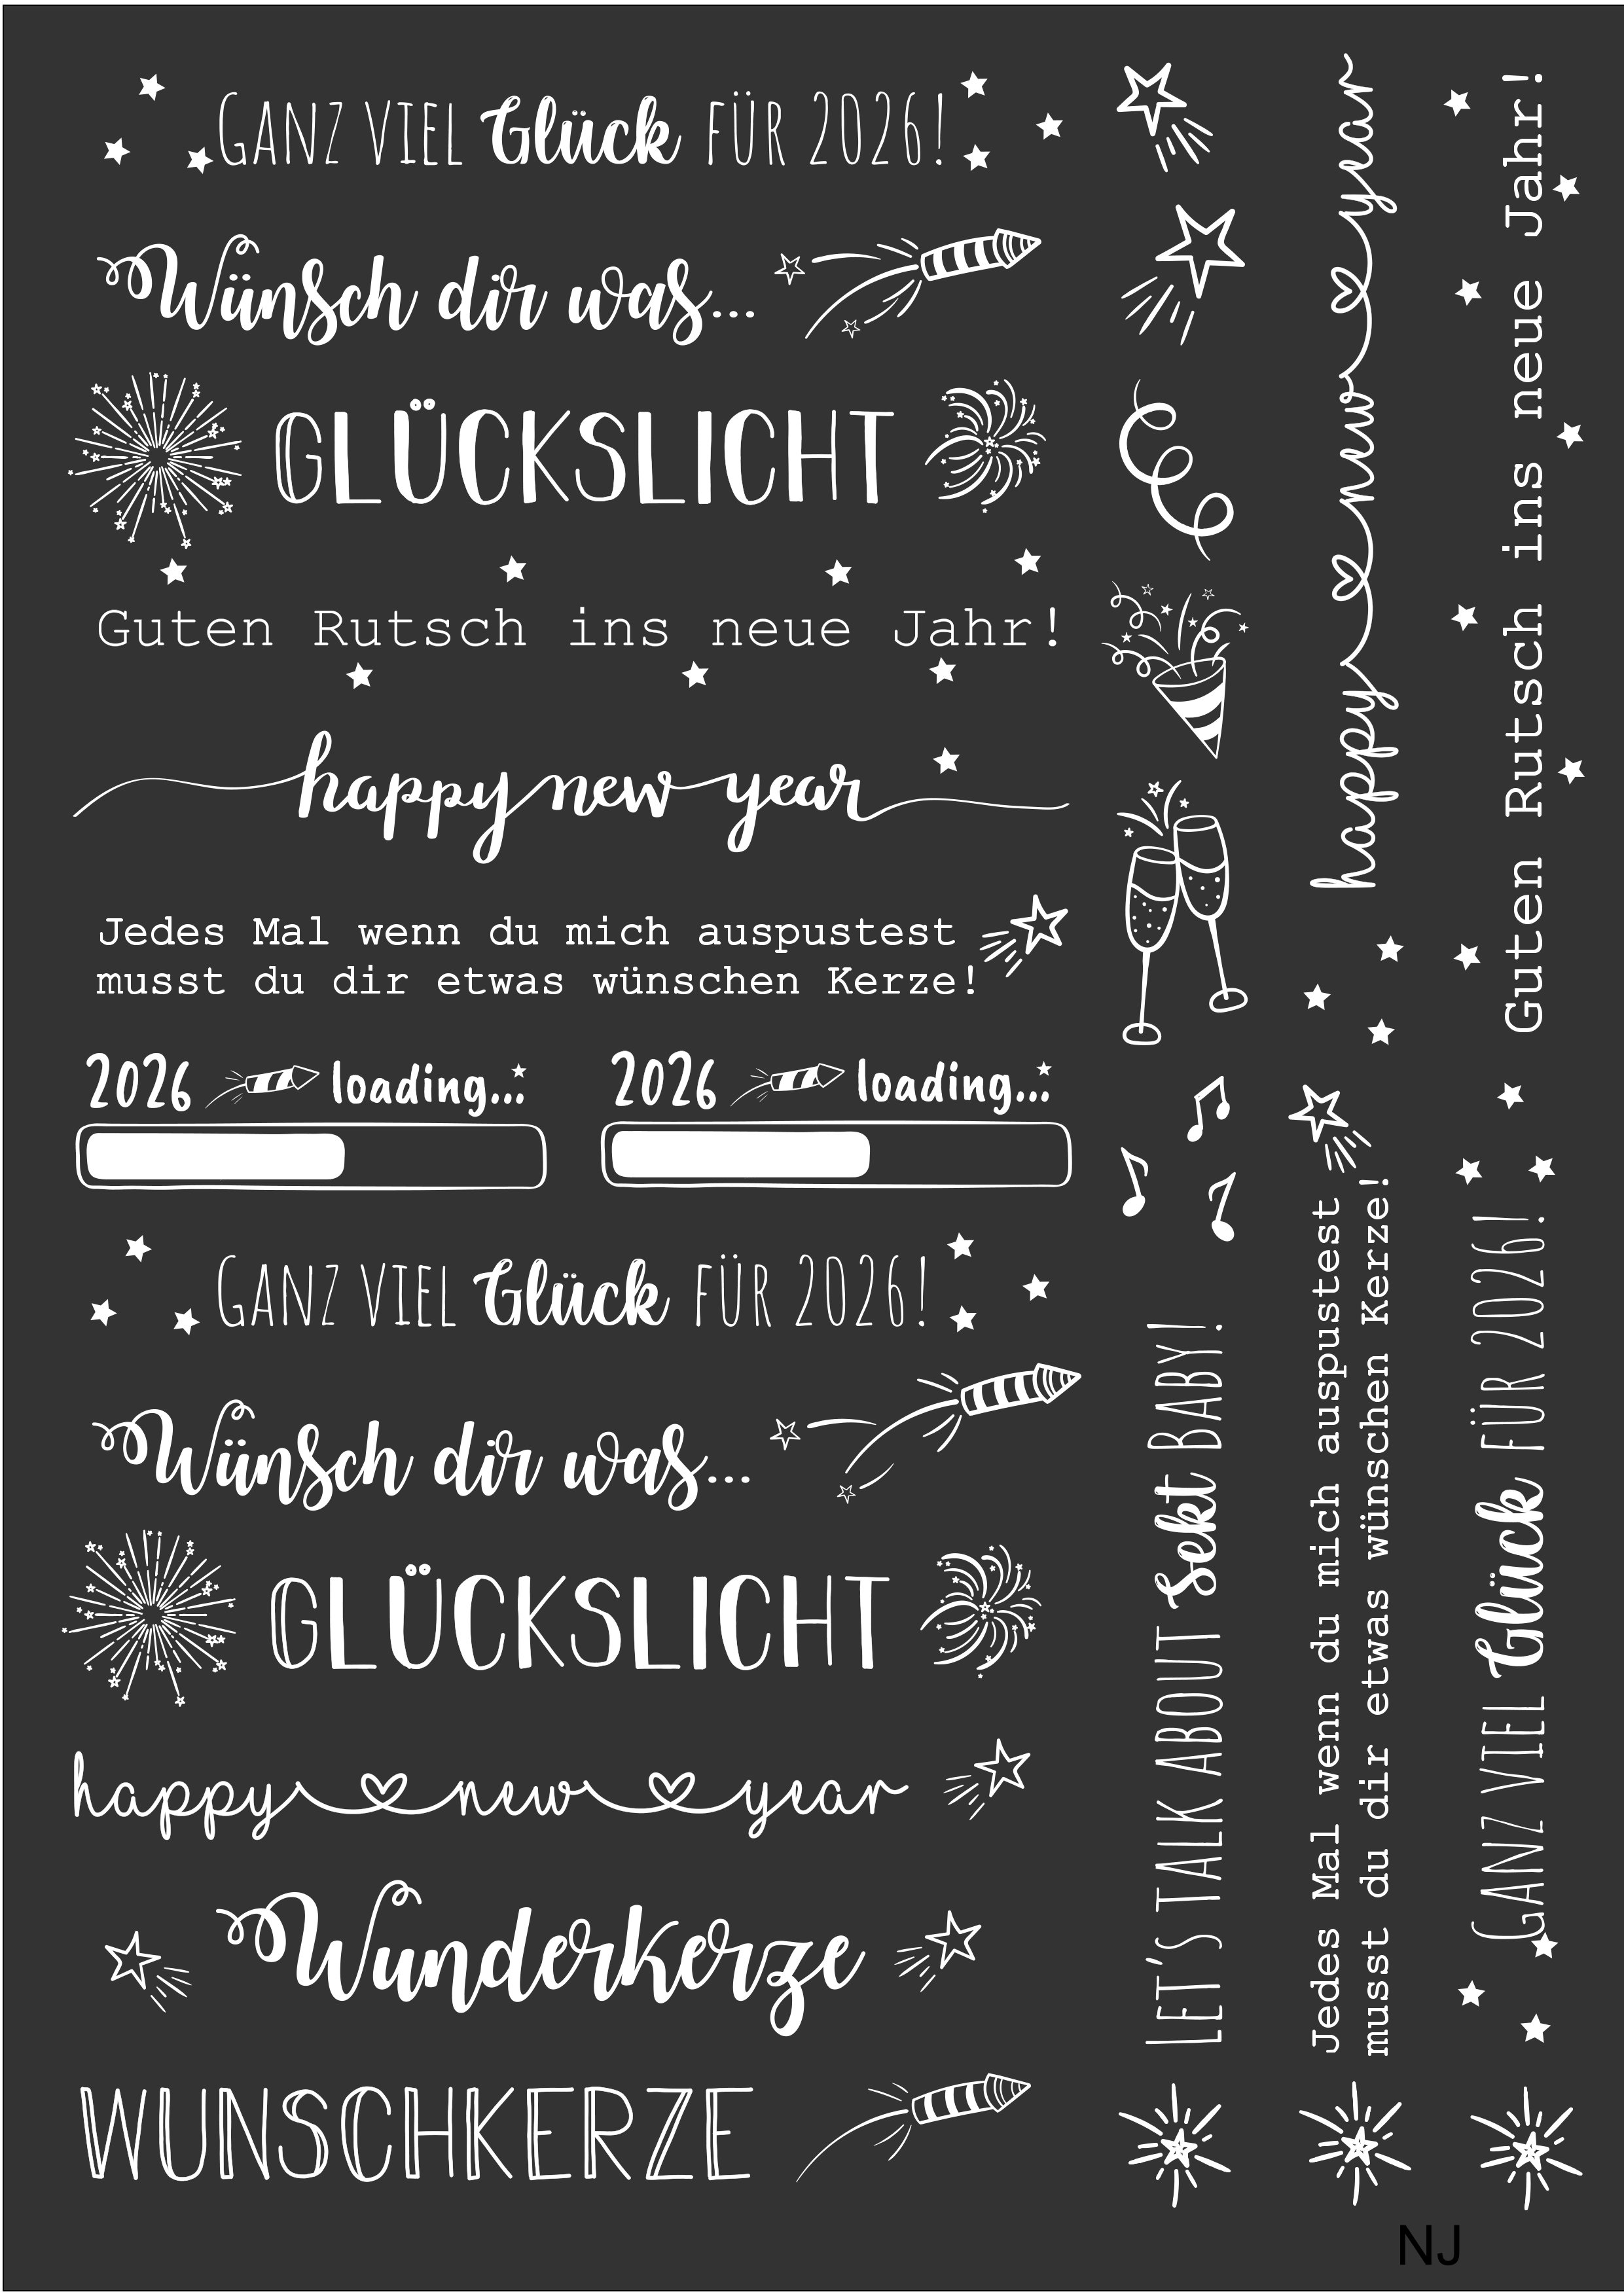 GANZ VIEL Glück FÜR 2026!
Wünsch dir was...
GLÜCKSLICHT
Guten Rutsch ins neue Jahr!
happy new year
Jedes Mal wenn du mich auspustest
musst du dir etwas wünschen Kerze!
2026 loading...
2026 loading...
GANZ VIEL Glück FÜR 2026!
Wünsch dir was...
GLÜCKSLICHT
happy new year
Wunderkerze
WUNSCHKERZE
LET'S TALK ABOUT Sekt BABY!
happy new year
Jedes Mal wenn du mich auspustest
musst du dir etwas wünschen Kerze!
Guten Rutsch ins neue Jahr!
GANZ VIEL Glück FÜR 2026!
NJ